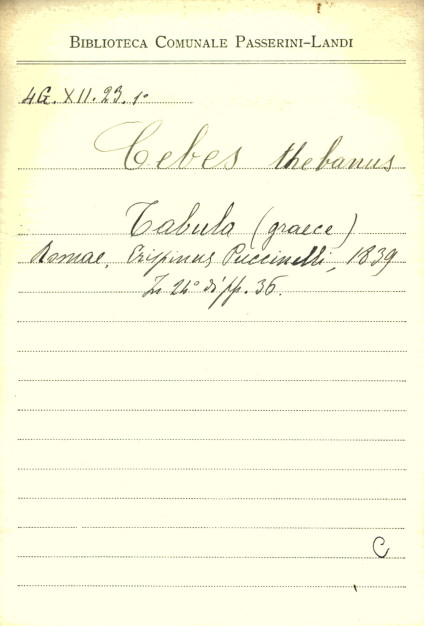 BIBLIOTECA COMUNALE PASSERINI-LANDI
4G. XII. 23. 1º
Cebes thebanus
Tabula (graece)
Romae, Crispinus Puccinelli, 1839
In 24º di pp. 36.
C